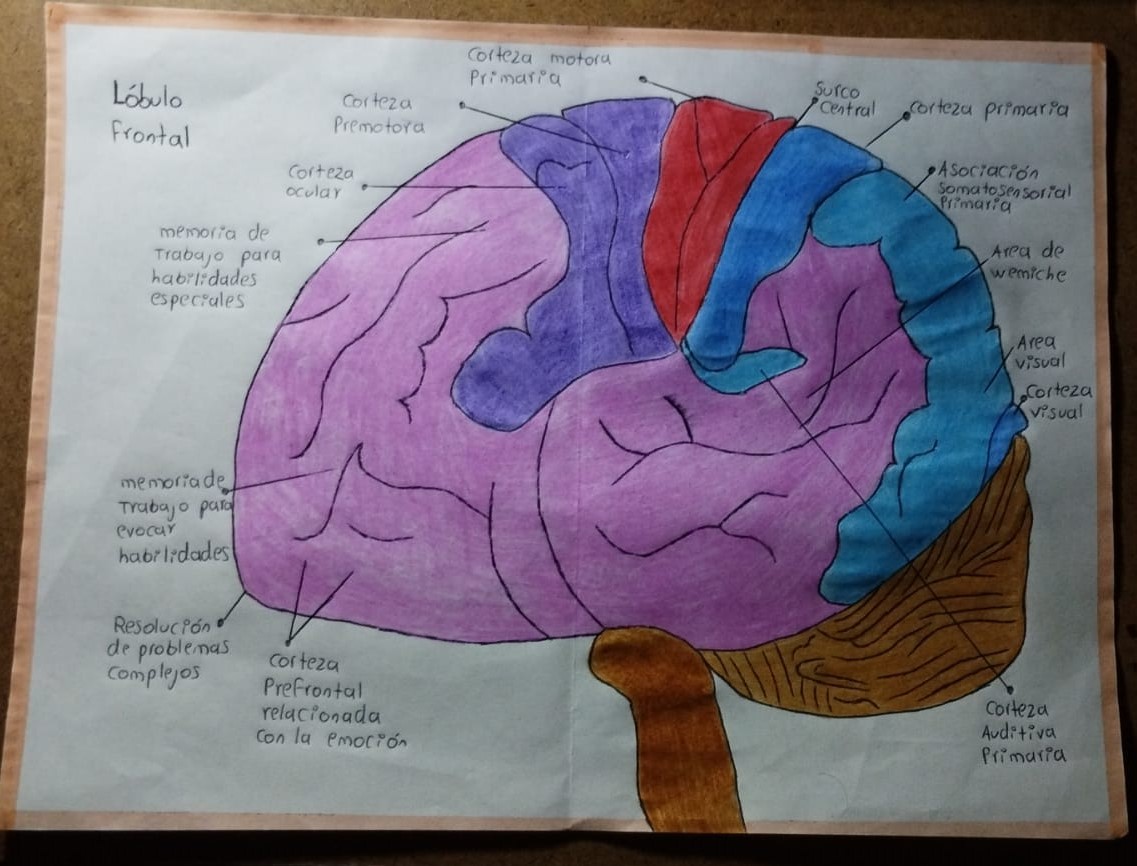 Lóbulo
Frontal
Corteza motora
Primaria
Corteza
Premotora
Corteza
ocular
memoria de
Trabajo para
habilidades
especiales
memoria de
Trabajo para
evocar
habilidades
Resolución
de problemas
complejos
Corteza
Prefrontal
relacionada
con la emoción
Surco
Central
Corteza primaria
Asociación
Somatosensorial
Primaria
Area de
wemiche
Area
visual
Corteza
visual
Corteza
Auditiva
Primaria